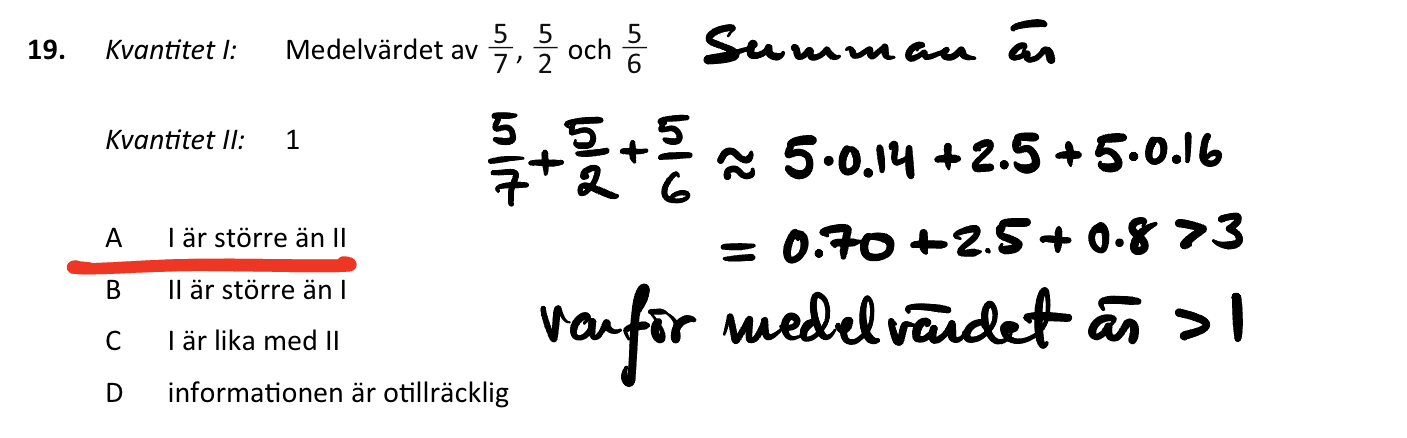 19. Kvantitet I: Medelvärdet av 5/7, 5/2 och 5/6 Summan är
Kvantitet II: 1
5/7 + 5/2 + 5/6 ≈ 5·0.14 + 2.5 + 5·0.16
= 0.70 + 2.5 + 0.8 > 3
A I är större än II
B II är större än I
varför medelvärdet är > 1
C I är lika med II
D informationen är otillräcklig